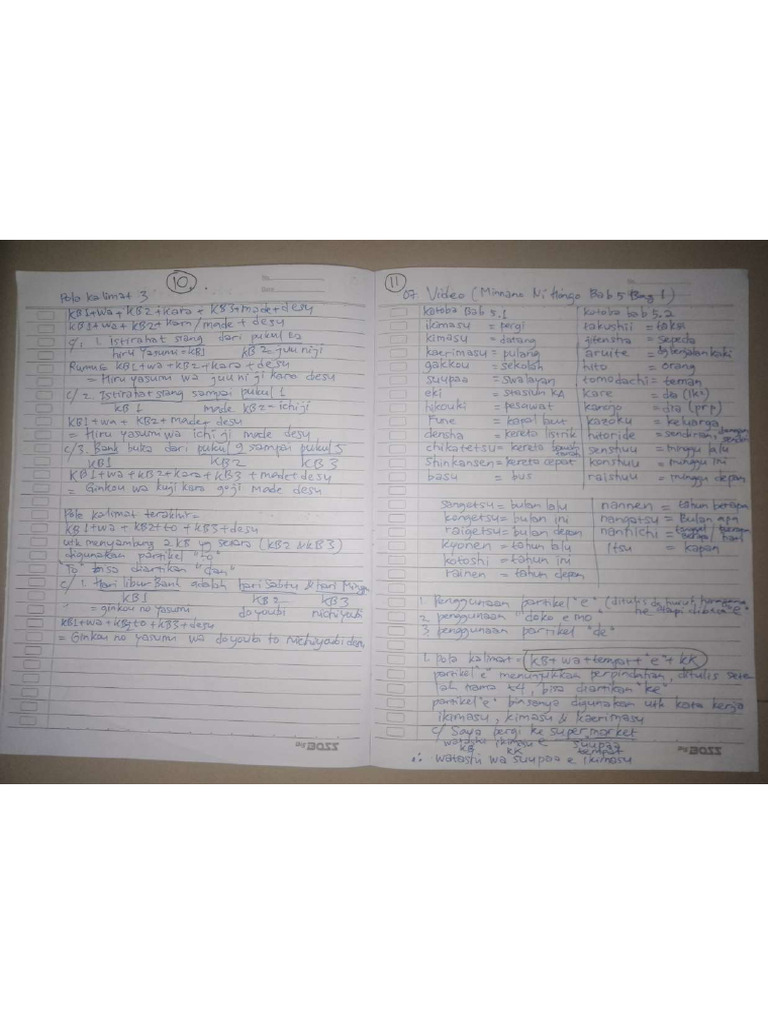 10
Pola kalimat 3
KB1+wa+KB2+kara+KB3+made+desu
KB1+wa+KB2+kara/made+desu
1. Istirahat siang dari pukul
hiru yasumi=KB1 KB2=juuniji
Rumus KB1+wa+KB2+kara+desu
= Hiru yasumi wa juuniji kara desu
c/2. Istirahat siang sampai pukul 1
KB1 made KB2-ichiji
KB1+wa+KB2+made+desu
= Hiru yasumi wa ichiji made desu
c/3. Bank buka dari pukul 9 sampai pukul 5
KB1 KB2 KB3
KB1+wa+KB2+kara+KB3+made+desu
= Ginkou wa kuji kara goji made desu
Pola kalimat terakhir=
KB1+wa+KB2+to+KB3+desu
utk menyambung 2 KB yg setara (KB2 & KB3)
digunakan partikel "to"
"To" bisa diartikan "dan"
c/1. Hari libur Bank adalah hari Sabtu & hari Minggu
KB1 KB2 KB3
= ginkou no yasumi doyoubi nichiyoubi
KB1+wa+KB2+to+KB3+desu
= Ginkou no yasumi wa doyoubi to Nichiyoubi desu
11
07 Video (Minnano Nihongo Bab 5 Bag 1)
Kotoba Bab 5.1 kotoba bab 5.2
ikimasu = pergi takushii = taksi
kimasu = datang jitensha = sepeda
kaerimasu = pulang aruite = berjalan kaki
gakkou = sekolah hito = orang
suupaa = swalayan tomodachi = teman
eki = stasiun KA kare = dia (lk²)
hikouki = pesawat kanojo = dia (prp)
Fune = kapal laut kazoku = keluarga
densha = kereta listrik hitoride = sendirian
chikatetsu = kereta bawah tanah senshuu = minggu lalu
shinkansen = kereta cepat konshuu = minggu ini
basu = bus raishuu = minggu depan
sengetsu = bulan lalu nannen = tahun berapa
kongetsu = bulan ini nangatsu = Bulan apa
raigetsu = bulan depan nannichi = tanggal
kyonen = tahun lalu Itsu = kapan
kotoshi = tahun ini
rainen = tahun depan
1. Penggunaan partikel "e" (ditulis dg huruf he tetapi dibaca "e"
2. penggunaan "doko e mo"
3. penggunaan partikel "de"
1. pola kalimat = KB+wa+tempat+"e"+KK
partikel "e" menunjukkan perpindahan, ditulis sete
lah nama t4, bisa diartikan "ke"
partikel "e" biasanya digunakan utk kata kerja
ikimasu, kimasu & kaerimasu
c/ Saya pergi ke supermarket
watashi ikimasu e suupaa
KB KK tempat
∴ watashi wa suupaa e ikimasu
BOSS
BOSS